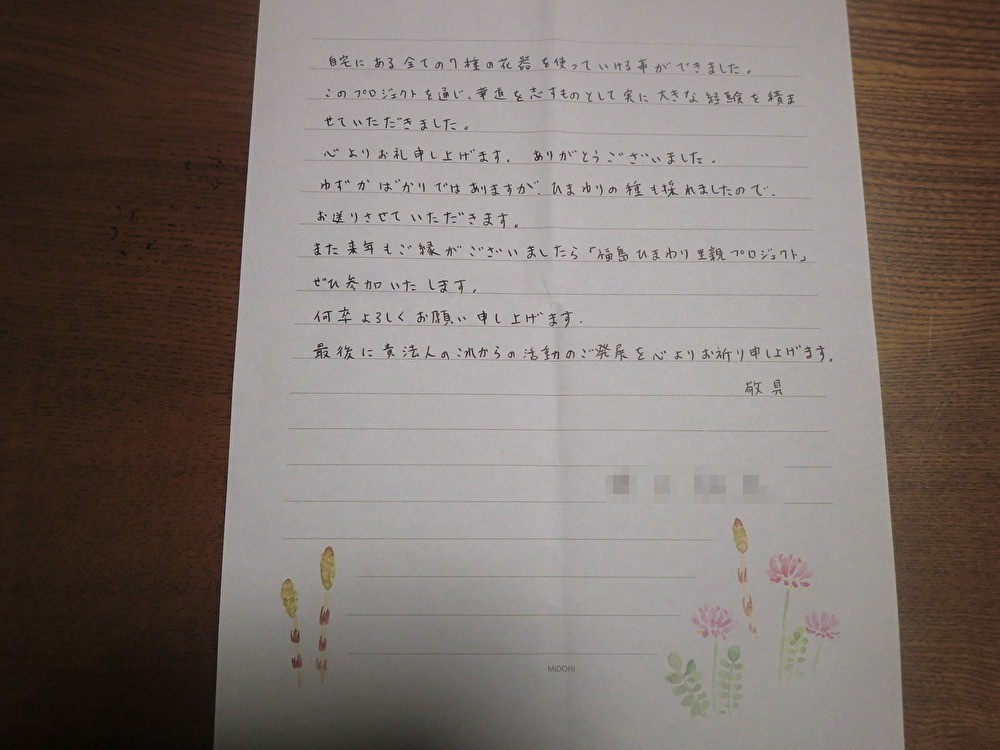 自宅にある全ての7種の花器を使っていける事ができました。
このプロジェクトを通じ、華道を志すものとして実に大きな経験を積ま
せていただきました。
心よりお礼申し上げます。 ありがとうございました。
わずかばかりではありますが、ひまわりの種も採れましたので、
お送りさせていただきます。
また来年もご縁がございましたら「福島ひまわり里親プロジェクト」
ぜひ参加いたします。
何卒よろしくお願い申し上げます.
最後に貴法人のこれからの活動のご発展を心よりお祈り申し上げます。
敬具
MiDORi